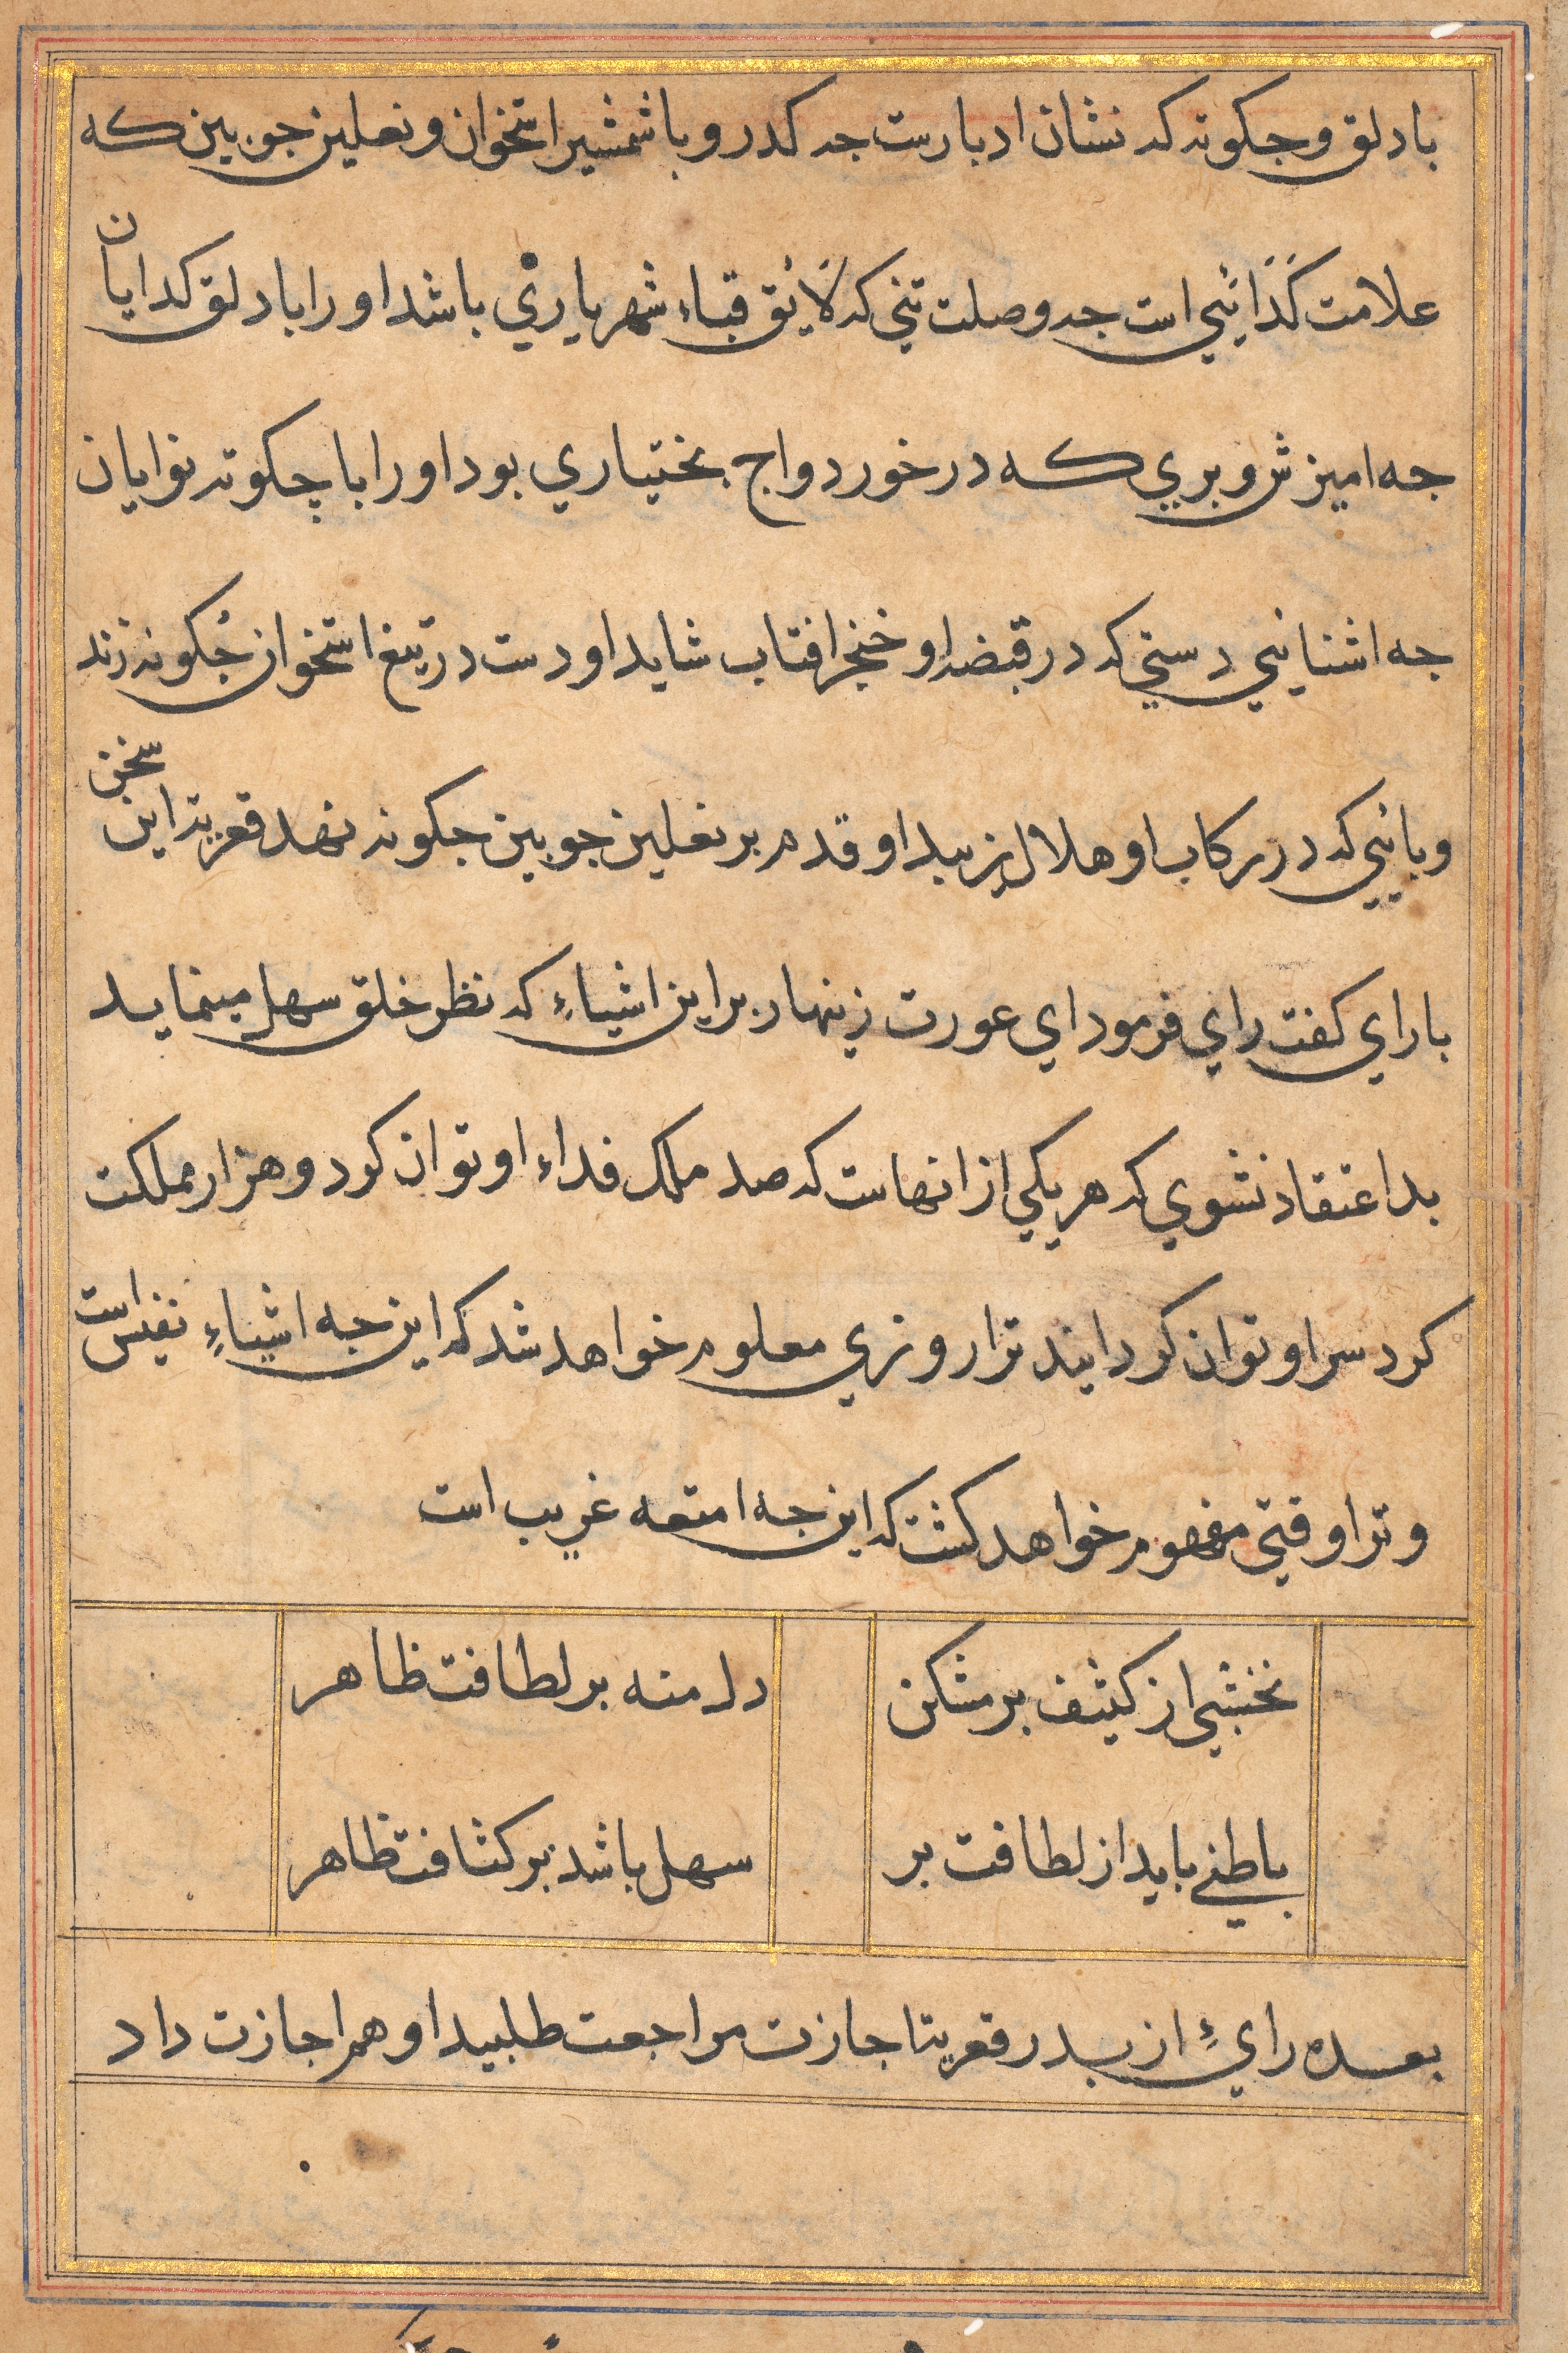 بادلق و جکونه که نشان ادبارست جه کدر و با شمشیر استخوان و نعلین جوبین که
علامت کَدَائیی است جه وصلت تنی که لائق قباء شهریاریْ باشد او را با دلق کدایان
جه امیزش و بریی که در خورد واج بختیاری بود او را با چکونه نوایان
جه اشنایی دستی که در قبضه او خنجر افتاب شاید او دست در تیغ استخوان جُکونه زند
و پایی که در رکاب او هلال زیبد او قدم بر نعلین جوبین جکونه نهد قعریه این سخن
با رای کفت رای فرمود ای عورت زینهار بر این اشیاءِ که نظر خلق سهل مینماید
بد اعتقاد نشوی که هر یکی از انهاست که صد ملک فداء او توان کرد و هزار مملکت
کرد سر او توان کردانید ترا روزی معلوم خواهد شد که این جه اشیاءِ نفیس است
و ترا وقتی مفهوم خواهد کشت که این جه امتعه غریب است
نخشبی از کیثف بر مشکن
دل منه بر لطافت ظاهر
باطنی باید از لطافت بر
سهل باشد بر کثافت ظاهر
بعده رایٔ از پدر قعریتا جازت مراجعت طلبید او هم اجازت داد